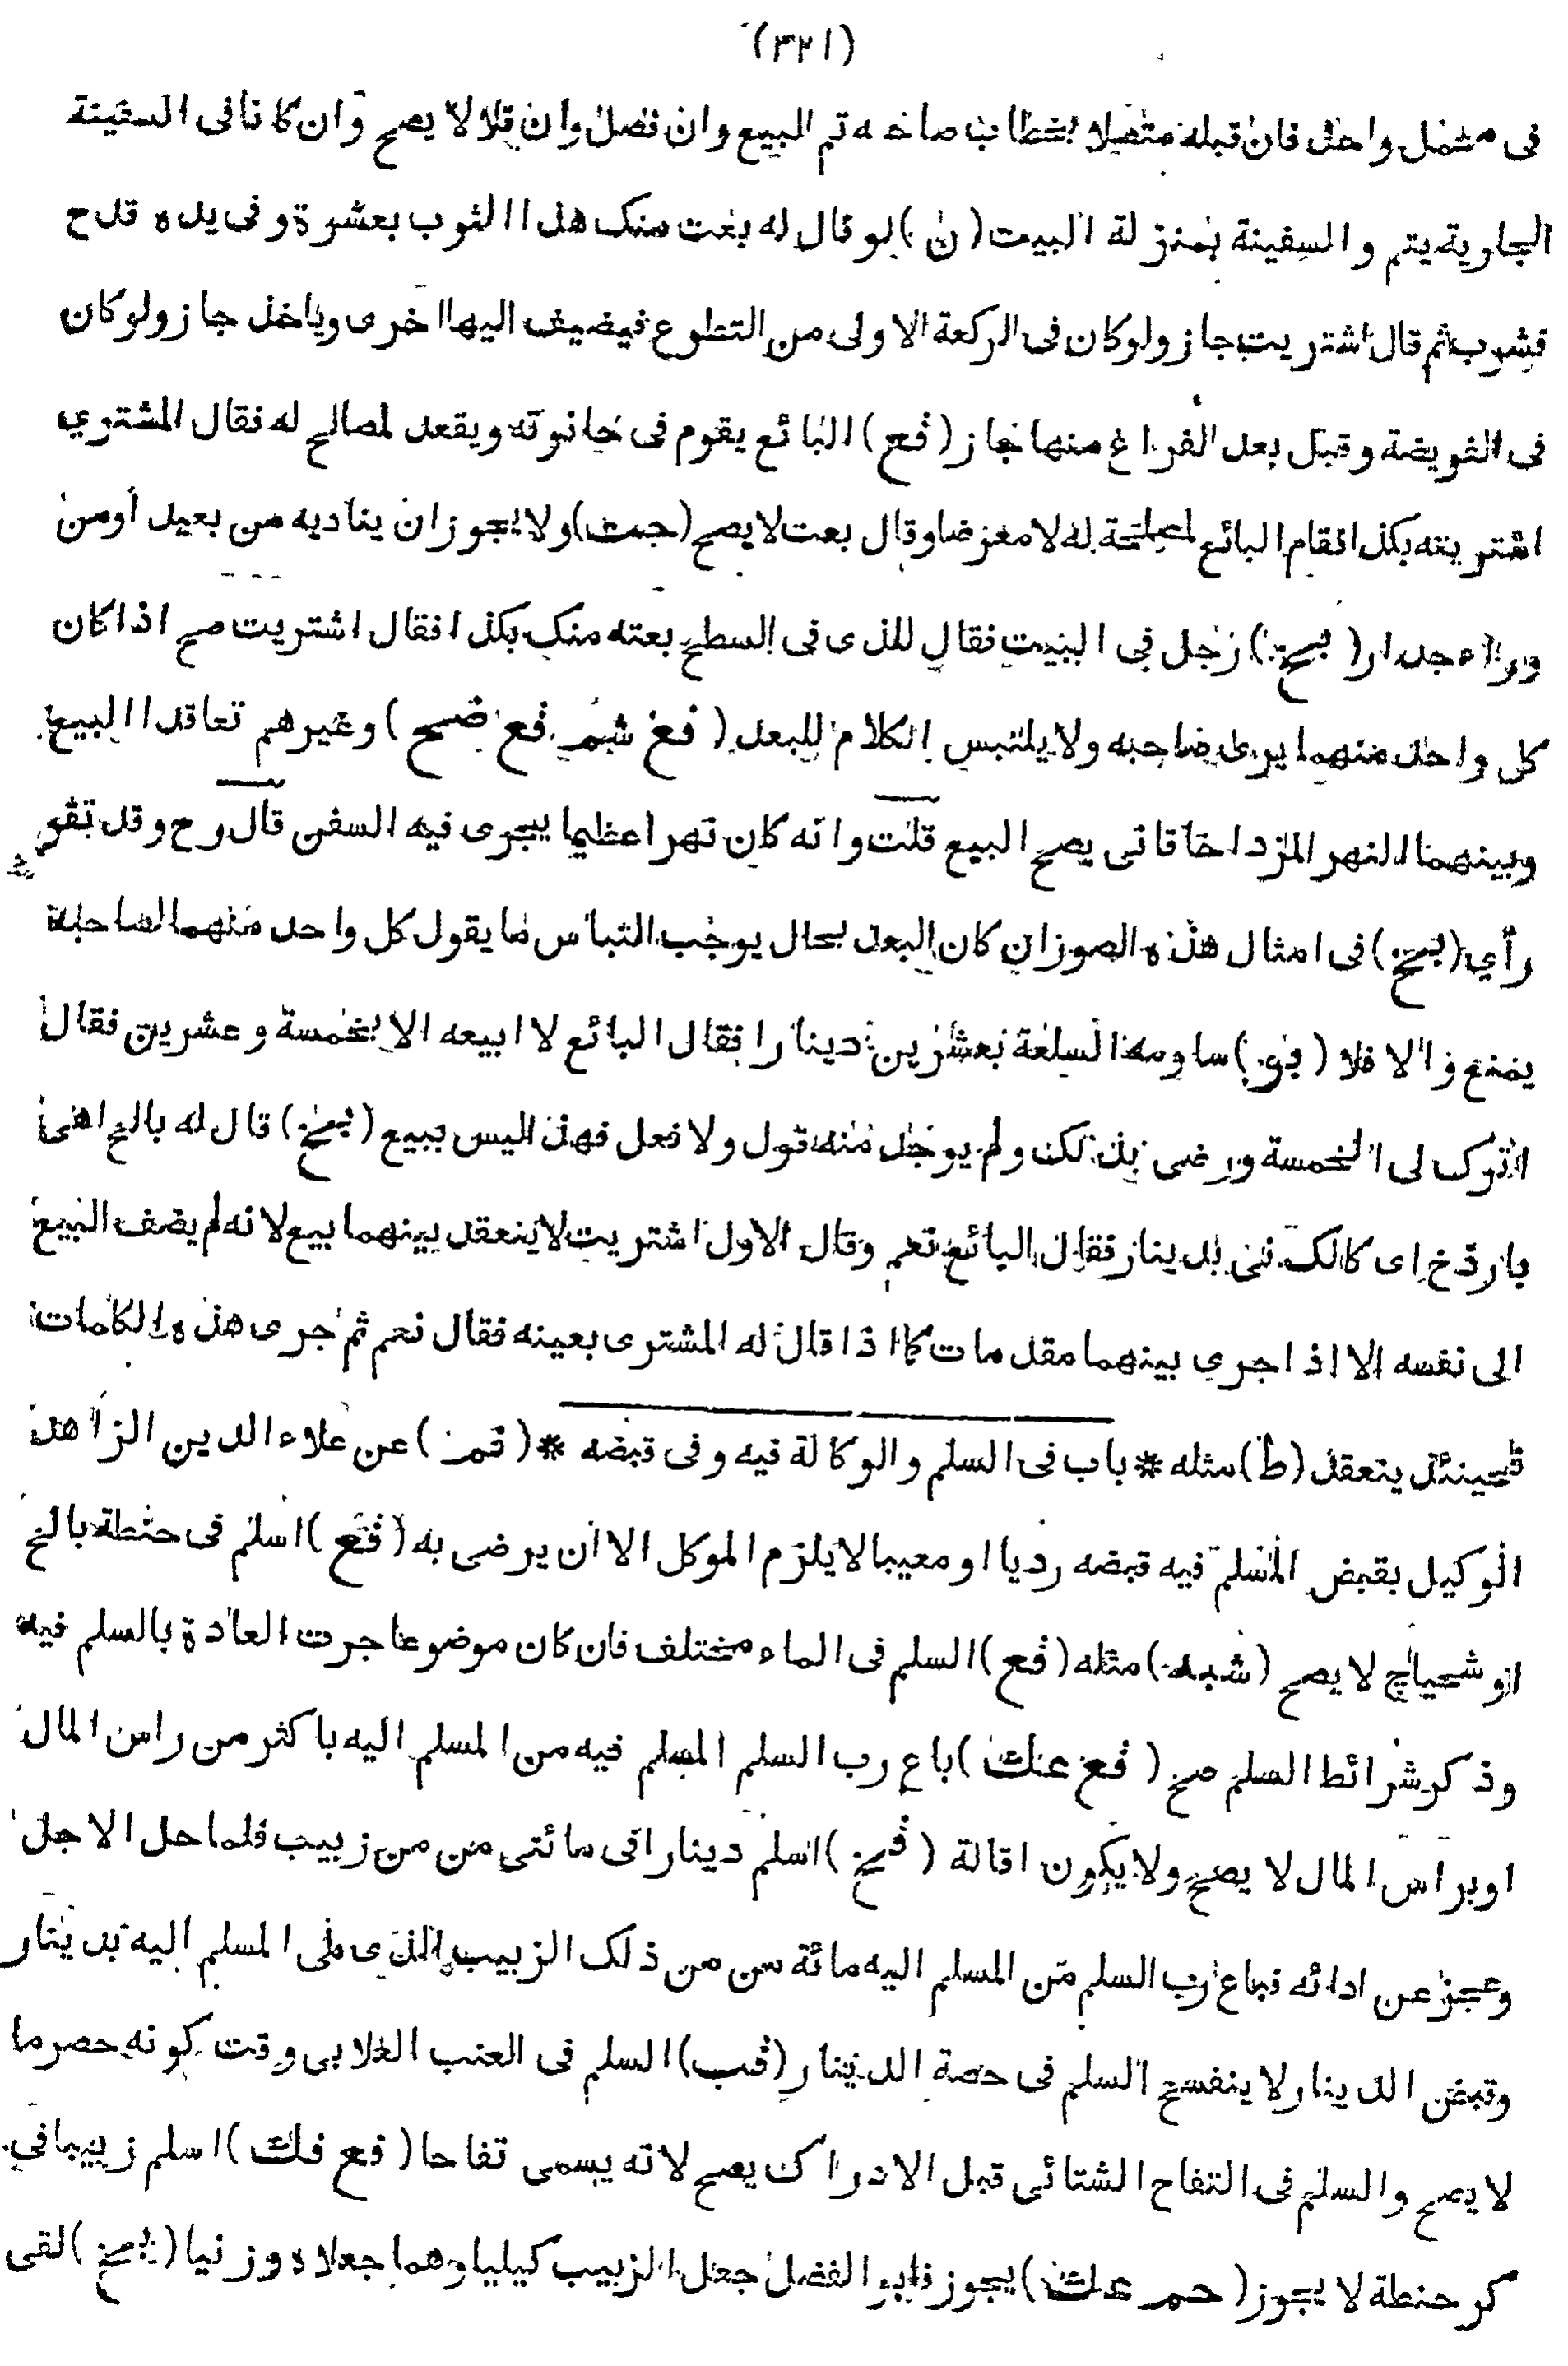 (٣٢١)
فى محمل واحد فان قبله متصلا بخطاب صاحبه تم البيع وان فصل وان قلا لا يصح وان كانا فى السفينة
الجارية يتم والسفينة بمنزلة البيت (ن) لو قال له بعت منك هذا الثوب بعشرة وفى يده قدح
فشرب ثم قال اشتريت جاز ولو كان فى الركعة الاولى من التطوع فيضيف اليها اخرى وياخذ جاز ولو كان
فى الفريضة وقبل بعد الفراغ منها جاز (فع) البائع يقوم فى حانوته ويقعد لمصالح له فقال المشتري
اشتريته بكذا فقام البائع لمصلحة له لا معرضا وقال بعت لا يصح (جت) ولا يجوز ان يناديه من بعيد أو من
وراء جدار (بخ) رجل فى البيت فقال للذى فى السطح بعته منك بكذا فقال اشتريت صح اذا كان
كل واحد منهما يرى صاحبه ولا يلتبس الكلام للبعد (فع شم فع ضح) وغيرهم تعاقدا البيع
وبينهما النهر المزداخاقانى يصح البيع قلت وانه كان نهرا عظيما يجرى فيه السفن قال رح وقد تقرر
رأي (بخ) فى امثال هذه الصور ان كان البعد بحال يوجب التباس ما يقول كل واحد منهما لصاحبه
يمنع والا فلا (بو) ساومه السلعة بعشرين دينارا فقال البائع لا ابيعه الا بخمسة وعشرين فقال
اترك لى الخمسة ورضى بذلك ولم يوجد منه قول ولا فعل فهذا ليس ببيع (بخ) قال له بالخ اهى
بار دخ اى كالك نى بدينار فقال البائع نعم وقال الاول اشتريت لا ينعقد بينهما بيع لانه لم يضف البيع
الى نفسه الا اذا جرى بينهما مقدمات كما اذا قال له المشترى بعينه فقال نعم ثم جرى هذه الكلمات
فحينئذ ينعقد (ط) مثله * باب فى السلم والوكالة فيه وفى قبضه * (قمد) عن علاء الدين الزاهد
الوكيل بقبض المسلم فيه قبضه رديا او معيبا لا يلزم الموكل الا ان يرضى به (فع) اسلم فى حنطة بالخ
او شحياج لا يصح (شبه) مثله (فع) السلم فى الماء مختلف فان كان موضوعا جرت العادة بالسلم فيه
وذكر شرائط السلم صح (فع عك) باع رب السلم المسلم فيه من المسلم اليه باكثر من راس المال
او براس المال لا يصح ولا يكون اقالة (فخ) اسلم دينارا فى مائتى من من زبيب فلما حل الاجل
وعجز عن ادائه فباع رب السلم من المسلم اليه مائة من من ذلك الزبيب الذى على المسلم اليه بدينار
وقبض الدينار لا ينفسخ السلم فى حصة الدينار (قب) السلم فى العنب الغلابى وقت كونه حصرما
لا يصح والسلم فى التفاح الشتائى قبل الادراك يصح لانه يسمى تفاحا (فع فك) اسلم زبيبا فى
كر حنطة لا يجوز (حم عك) يجوز فابو الفضل جعل الزبيب كيليا وهما جعلاه وزنيا (شخ) لقى